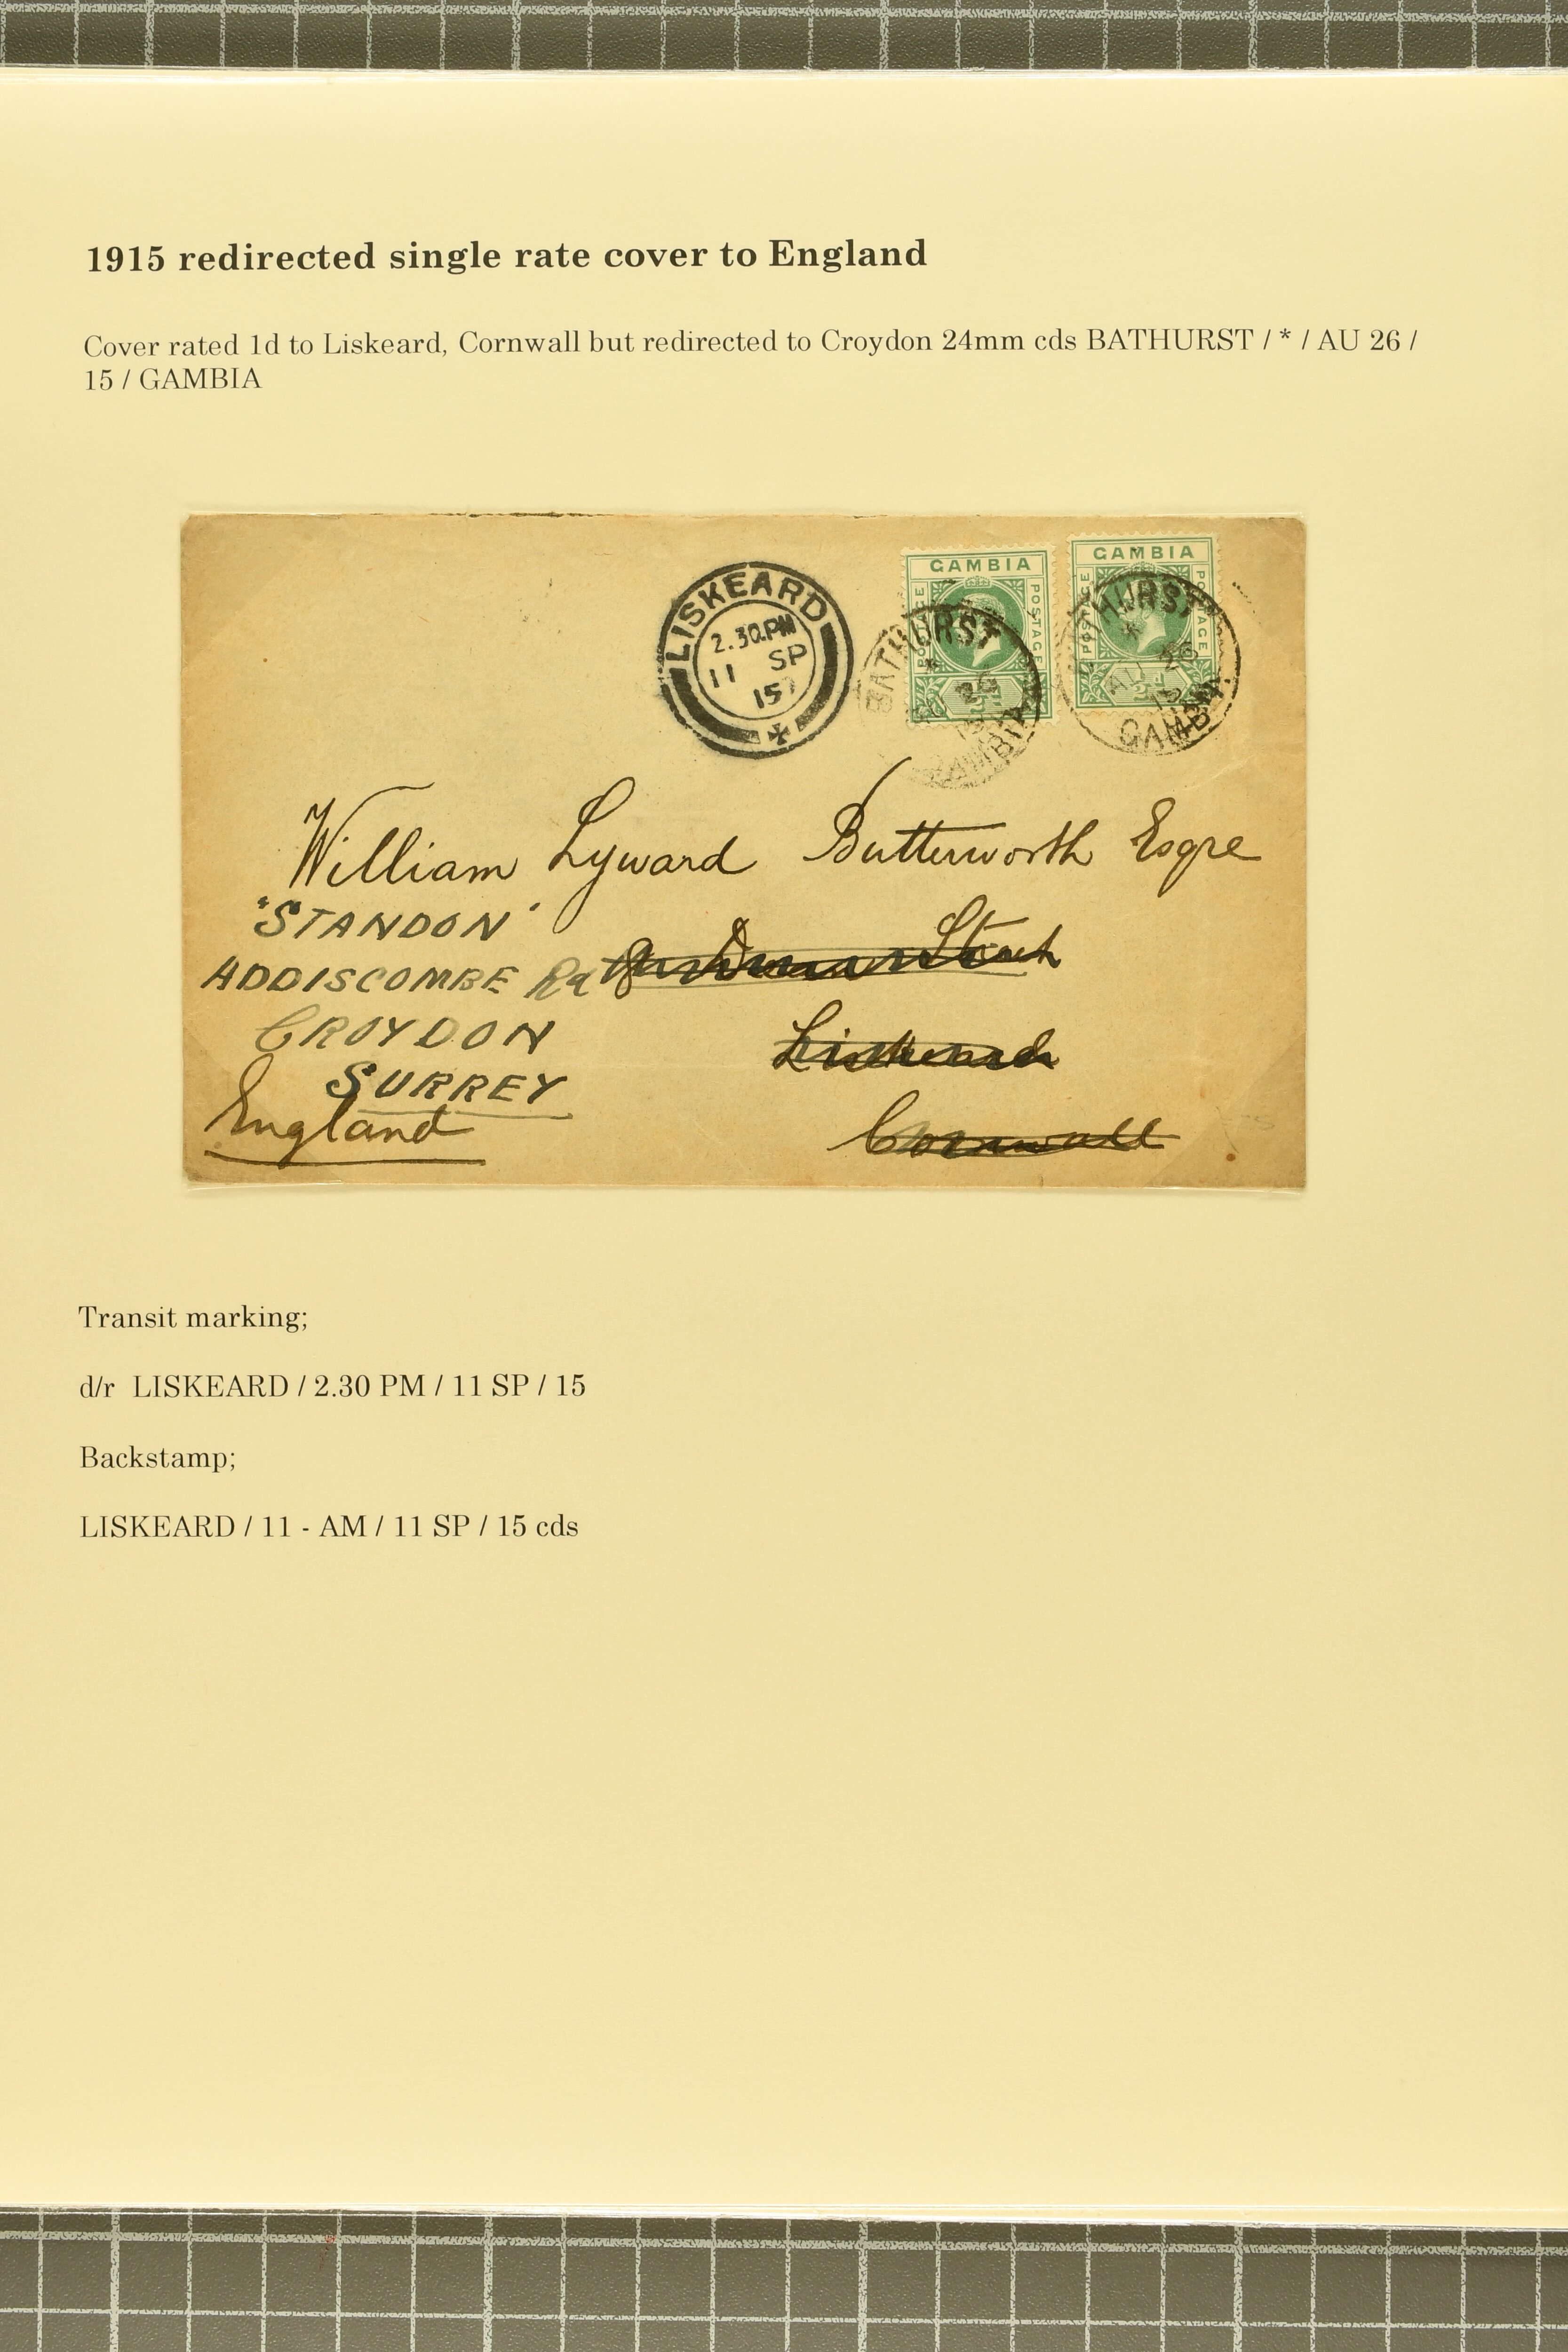 1915 redirected single rate cover to England
Cover rated 1d to Liskeard, Cornwall but redirected to Croydon 24mm cds BATHURST / * / AU 26 /
15 / GAMBIA
LISKEARD
2.30.PM
11 SP
15
GAMBIA
POSTAGE POSTAGE
BATHURST
AU 26
15
GAMBIA
GAMBIA
POSTAGE POSTAGE
BATHURST
AU 26
15
GAMBIA
William Lyward Butterworth Esqre
"STANDON"
ADDISCOMBE Rd
CROYDON
SURREY
England
Liskeard
Cornwall
Transit marking;
d/r LISKEARD / 2.30 PM / 11 SP / 15
Backstamp;
LISKEARD / 11 - AM / 11 SP / 15 cds